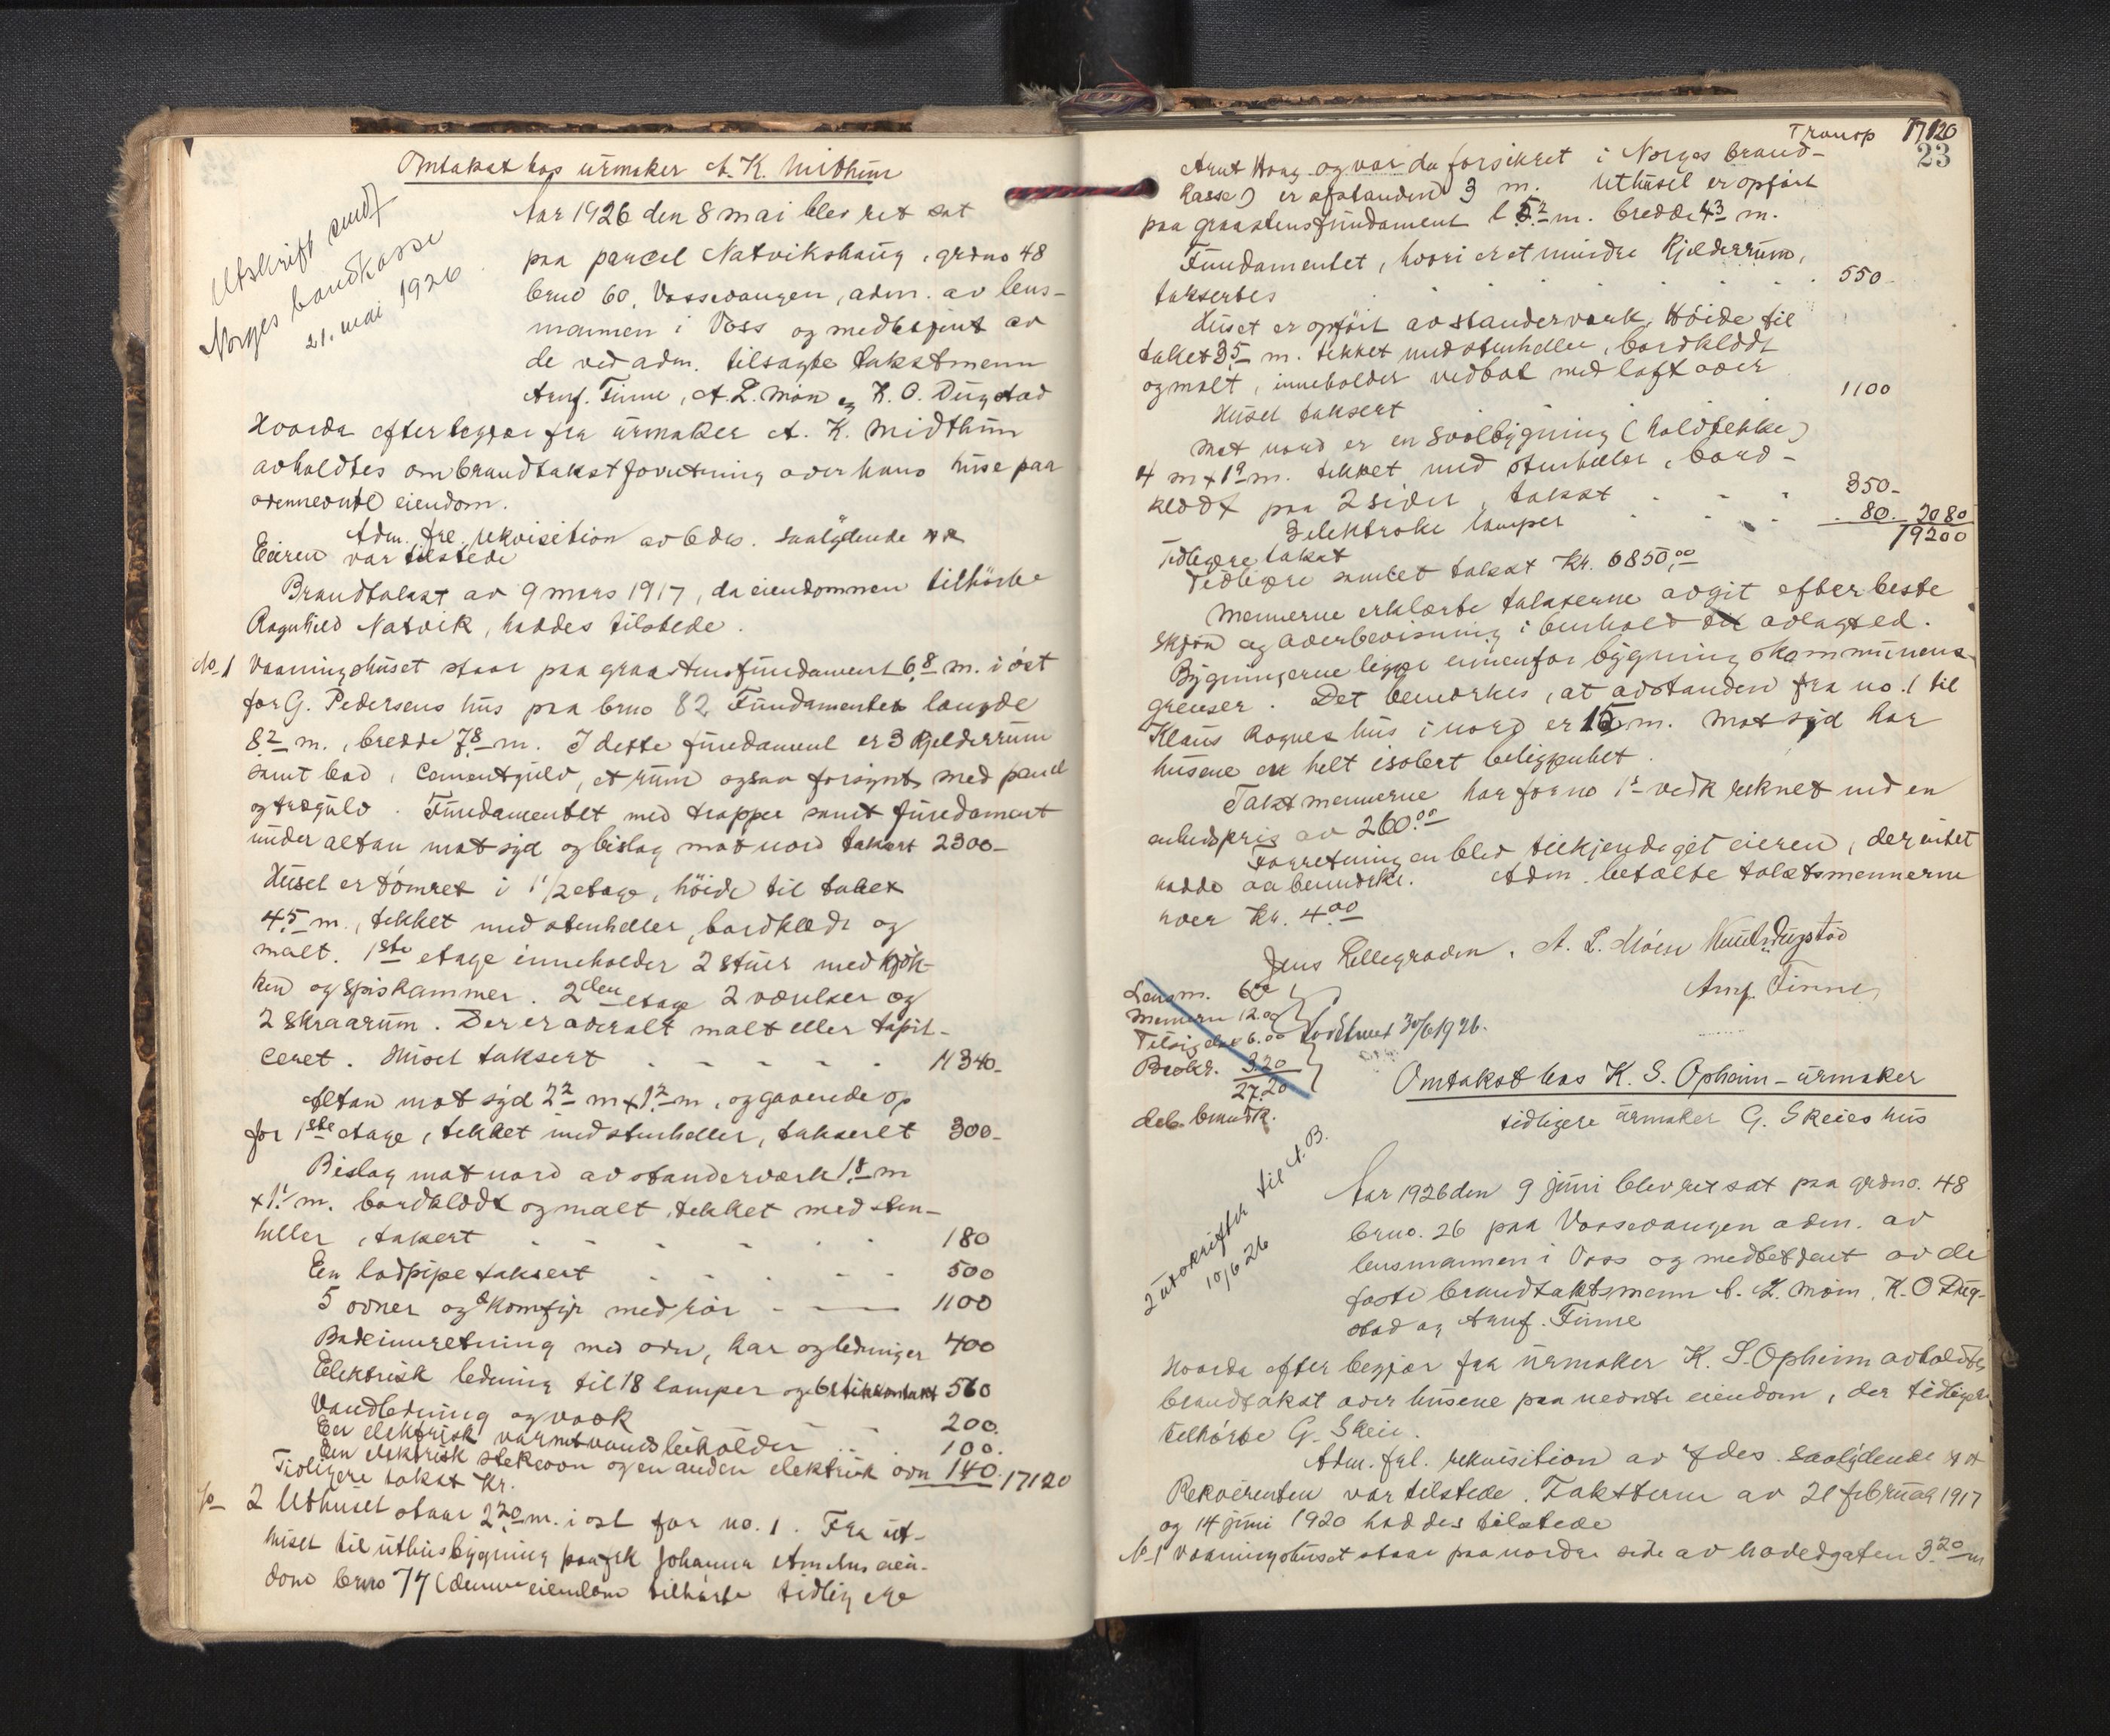 Omtakst hos urmaker A. K. Midthun
Utskrift sendt
Norges brandkasse
21. mai 1926
Aar 1926 den 8 mai blev ret sat
paa parcel Natvikshaug, grdno 48
brno 60, Vossevangen, adm. av lens-
mannen i Voss og medbetjent av
de ved adm. tilsagte takstmenn
Arnf. Finne, A. L. Møn og K. O. Dugstad
Hvorda efter begjær fra urmaker A. K. Midthun
avholdtes ombrandtakstforretning over hans huse paa
ovennevnte eiendom.
Adm. frl. rekvisition av 6 ds. saalydende xx
Eieren var tilstede
Brandtakst av 9 mars 1917, da eiendommen tilhørte
Ragnhild Natvik, haddes tilstede.
No. 1 Vaaningshuset staar paa graastensfundament 6,8 m. i øst
for G. Pedersens hus paa brno 82. Fundamentet længde
8,2 m., bredde 7,8 m. I dette fundament er 3 kjelderrum
samt bad, cementgulv, et rum ogsaa forsynt med panel
og trægulv. Fundamentet med trapper samt fundament
under altan mot syd og bislag mot nord taksert 2300-
Huset er tømret i 1 1/2 etage, høide til taket
4,5 m., tekket med stenheller, bordklædt og
malt. 1ste etage inneholder 2 stuer med kjøk-
ken og spiskammer. 2den etage 2 værelser og
2 skraarum. Der er overalt malt eller tapit-
ceret. Huset taksert - - - - . 11340-
Altan mot syd 2,2 m x 1,2 m, og gaaende op
for 1ste etage, tekket med stenheller, taksert 300-
Bislag mot nord av standerværk 1,8 m
x 1,1 m. bordklædt og malt, tekket med sten-
heller, taksert - - - - . . 180
Een lodpipe taksert - - . - - 500
5 ovner og 1 komfyr med rør - — 1100
Badeinnretning med ovn, kar og ledninger 400
Elektrisk ledning til 18 lamper og 6 stikkontakt 560
Vandledning og vask - - 200.
Een elektrisk varmtvandsbeholder . . 100.
Een elektrisk stekeovn og en anden elektrisk ovn 140. 17120
Tidligere takst Kr.
No 2 Uthuset staar 2,20 m. i øst for no. 1. Fra ut-
huset til uthusbygning paa frk Johanna eien-
dom brno 77 (denne eiendom tilhørte tidligere
Transp 17120
23
Arnt Haug og var da forsikret i Norges brand-
kasse) er afstanden 3 m. Uthuset er opført
paa graastensfundament l 5,2 m. bredde 4,3 m.
Fundamentet, hvori er et mindre kjelderrum,
takseres . . . . . . . 550-
Huset er opført av standerverk, høide til
taket 3,5 m. tekket med stenheller, bordklædt
og malt, inneholder vedbod med loft over
Huset taksert 1100
Mot nord er en svalbygning (halvtekke)
4 m x 1,9 m. tekket med stenheller, bord-
klædt paa 2 sider, takst . - - 350-
3 elektriske lamper . . . 80. 2080
19200
Tidligere takst
Tidligere samlet takst Kr. 6850,00
Mennerne erklærte taksterne avgit efter beste
skjøn og overbevisning i henhold til avlagt ed.
Bygningerne ligger ennenfor bygningskommunens
grenser. Det bemerkes, at avstanden fra no. 1 til
Klaus Rognes hus i nord er 15 m. Mot syd har
husene en helt isolert beliggenhet.
Takstmennerne har for no 1s vedk reknet med en
enhetspris av 260,00
Forretningen blev tilkjendegit eieren, der intet
hadde aa bemerke. Adm. betalte takstmennerne
hver Kr. 4,00
Jens Lillegraven. A. L. Møen Knut Dugstad
Arnf. Finne
Lensm. 6,00
Mennern 12.00
Tilsigelse 6.00
Brokr. 3.20
27.20
Godkent 30/6 1926.
deb. bmerk.
Omtakst hos K. S. Opheim - urmaker
tidligere urmaker G. Skeies hus
2 utskrifter til N.B.
10/6 26
Aar 1926 den 9 juni blev ret sat paa grdno. 48
brno. 26 paa Vossevangen adm. av
lensmannen i Voss og medbetjent av de
faste brandtakstmenn A. L. Møen, K. O Dug-
stad og Arnf. Finne
Hvorda efter begjær fra urmaker K. S. Opheim avholdtes
brandtakst over husene paa nevnte eiendom, der tidligere
tilhørte G. Skeie.
Adm. frl. rekvisition av 7 des. saalydende xx
Rekvirenten var tilstede. Taksterne av 21 februar 1917
og 14 juni 1920 haddes tilstede
No 1 Vaaningshuset staar paa nordre side av hovedgaten 3,20 m